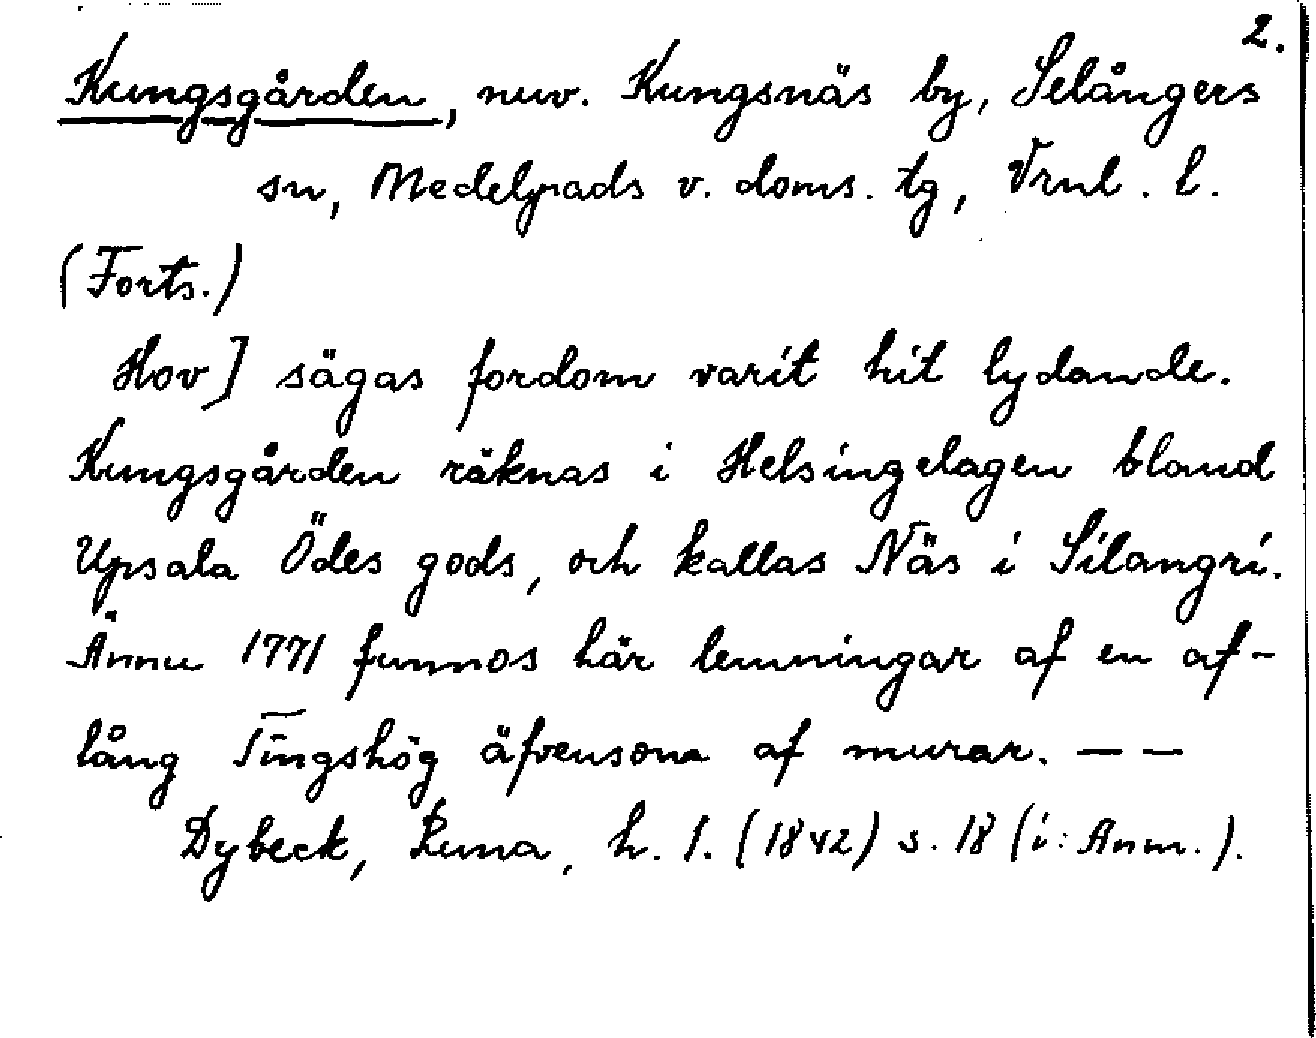 2.
Kungsgården, nuv. Kungsnäs by, Selångers
sn, Medelpads v. doms. tg, Vrnl. l.
(Forts.)
Hov] sägas fordom varit hit lydande.
Kungsgården räknas i Helsingelagen bland
Upsala Ödes gods, och kallas Näs i Silangri.
Ännu 1771 funnos här lemningar af en af-
lång Tingshög äfvensom af murar. — —
Dybeck, Runa, h. 1. (1842) s. 18 (i: Anm.).